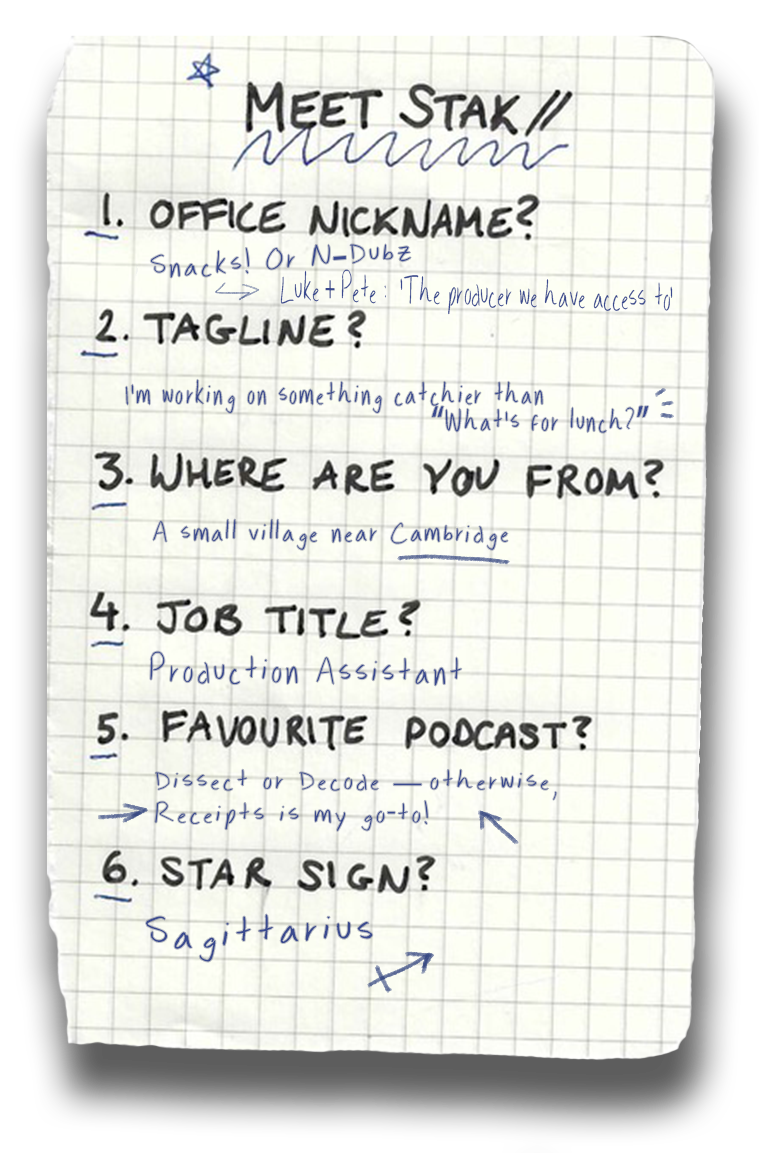 MEET STAK//
1. OFFICE NICKNAME?
Snacks! Or N-Dubz
Luke + Pete: 'The producer we have access to'
2. TAGLINE?
I'm working on something catchier than
"What's for lunch?"
3. WHERE ARE YOU FROM?
A small village near Cambridge
4. JOB TITLE?
Production Assistant
5. FAVOURITE PODCAST?
Dissect or Decode — otherwise,
Receipts is my go-to!
6. STAR SIGN?
Sagittarius